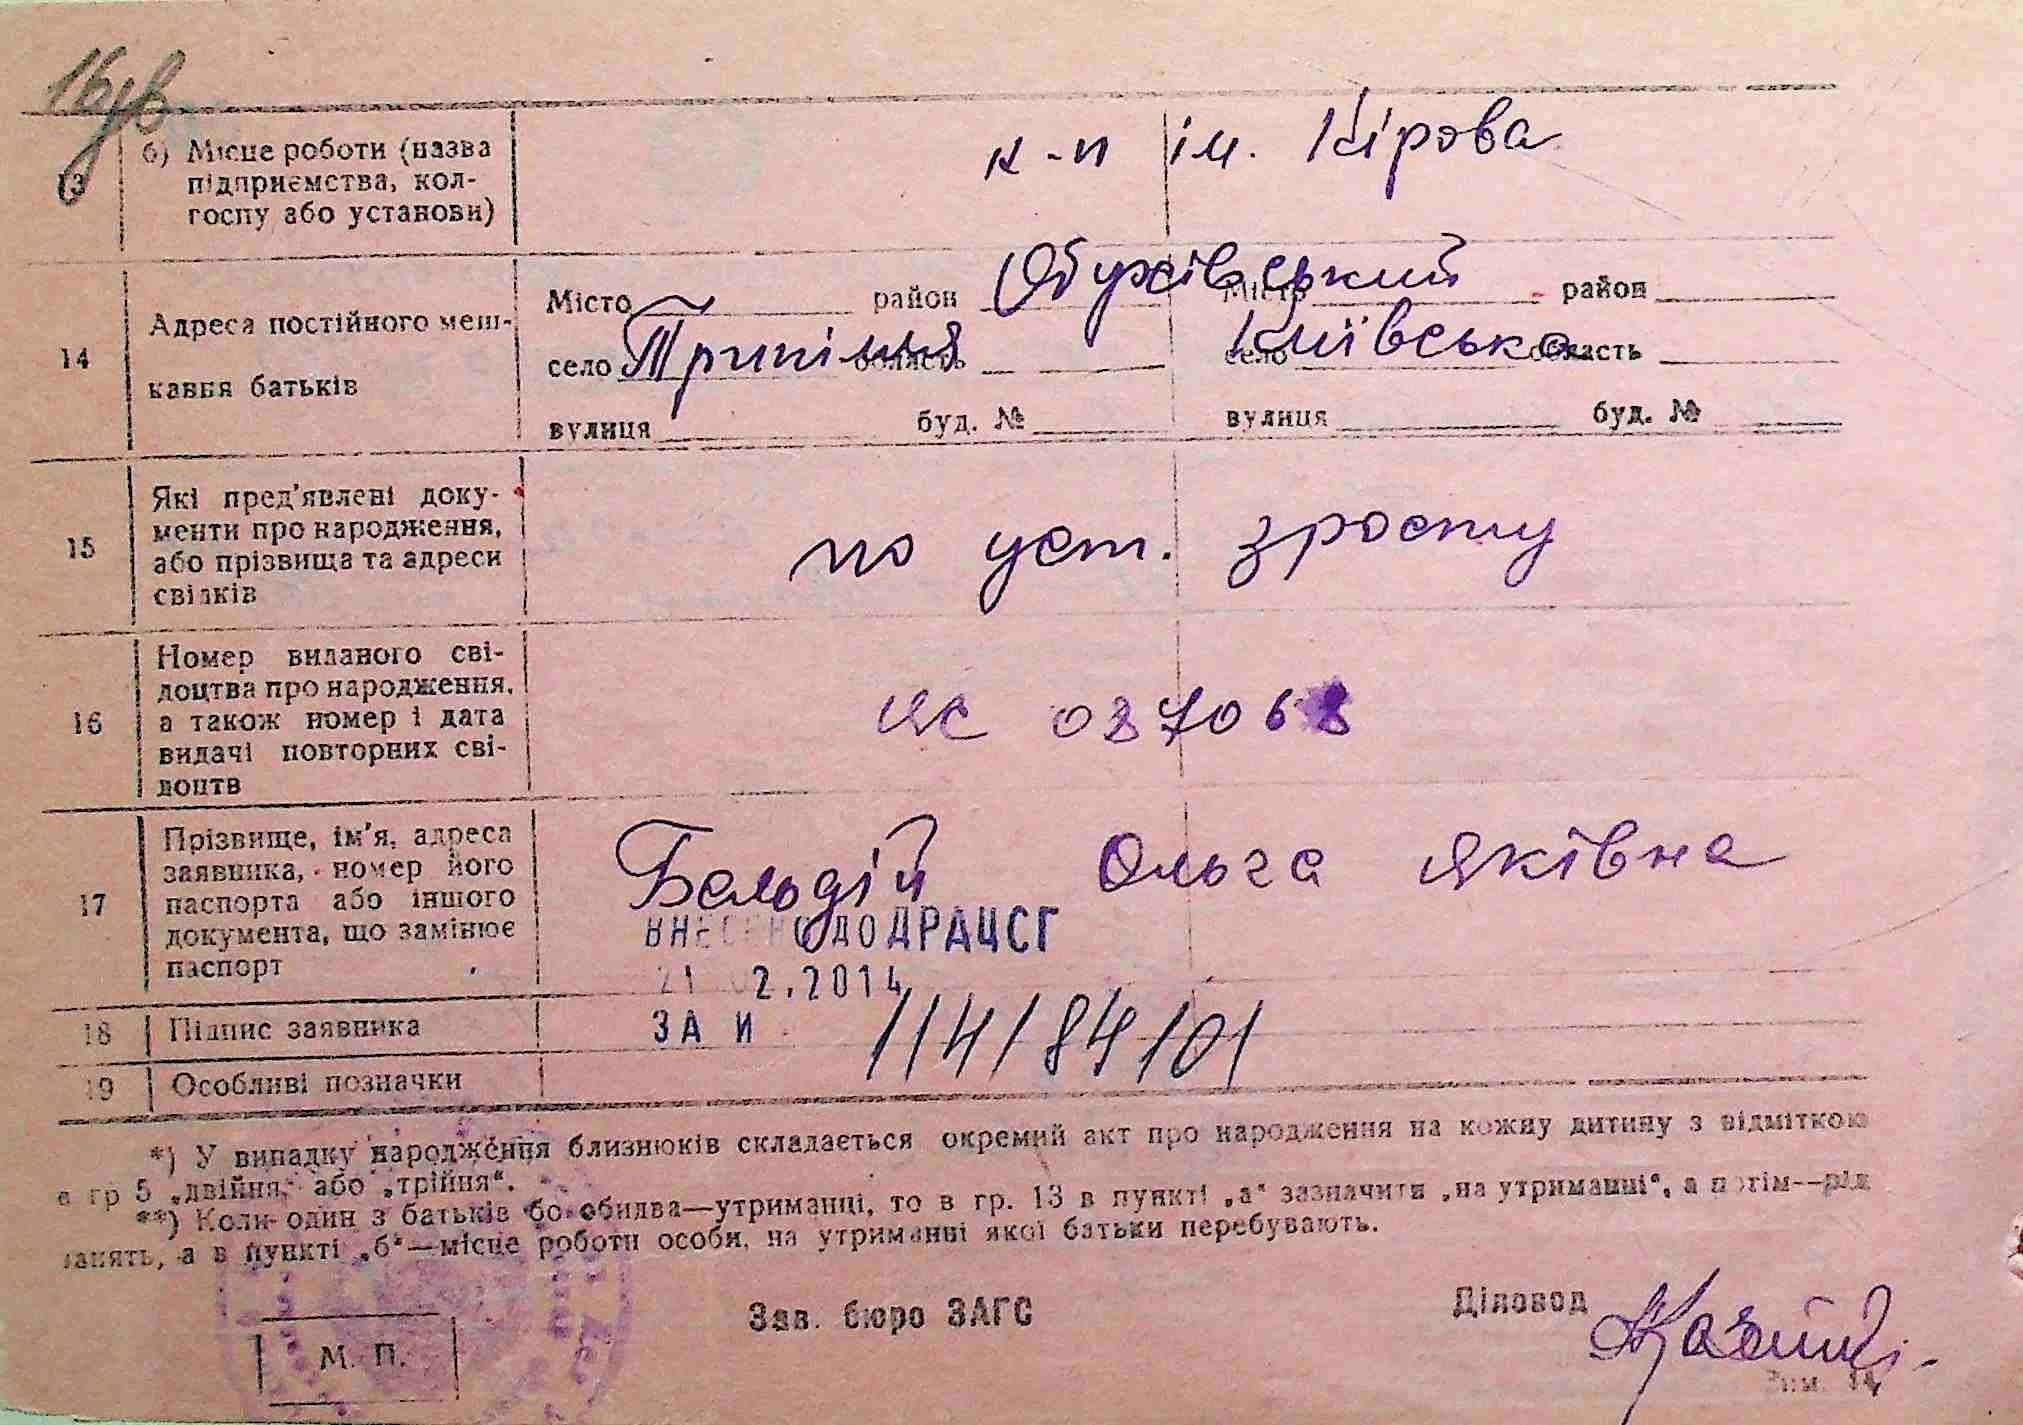 13 б) Місце роботи (назва
підприємства, кол-
госпу або установи)
к-п ім. Кірова
14 Адреса постійного меш-
кання батьків
Місто район Обухівський Місто район
село Трипілля область село Київська область
вулиця буд. № вулиця буд. №
15 Які пред'явлені доку-
менти про народження,
або прізвища та адреси
свідків
по уст. зросту
16 Номер виданого сві-
доцтва про народження,
а також номер і дата
видачі повторних сві-
доцтв
ЯС 087068
17 Прізвище, ім'я, адреса
заявника, номер його
паспорта або іншого
документа, що замінює
паспорт
Бельдій Ольга Яківна
ВНЕСЕНО ДО ДРАЦСГ
21 02.2014
18 Підпис заявника
ЗА И
19 Особливі позначки
*) У випадку народження близнюків складається окремий акт про народження на кожну дитину з відміткою
в гр 5 „двійня," або „трійня".
**) Коли один з батьків бо обидва—утриманці, то в гр. 13 в пункті „а" зазначити „на утриманні", а потім—рід
занять, а в пункті „б"—місце роботи особи, на утриманні якої батьки перебувають.
Зав. бюро ЗАГС
Діловод
М. П.